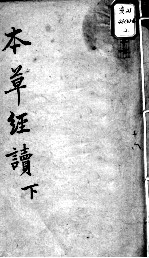 本草經讀下